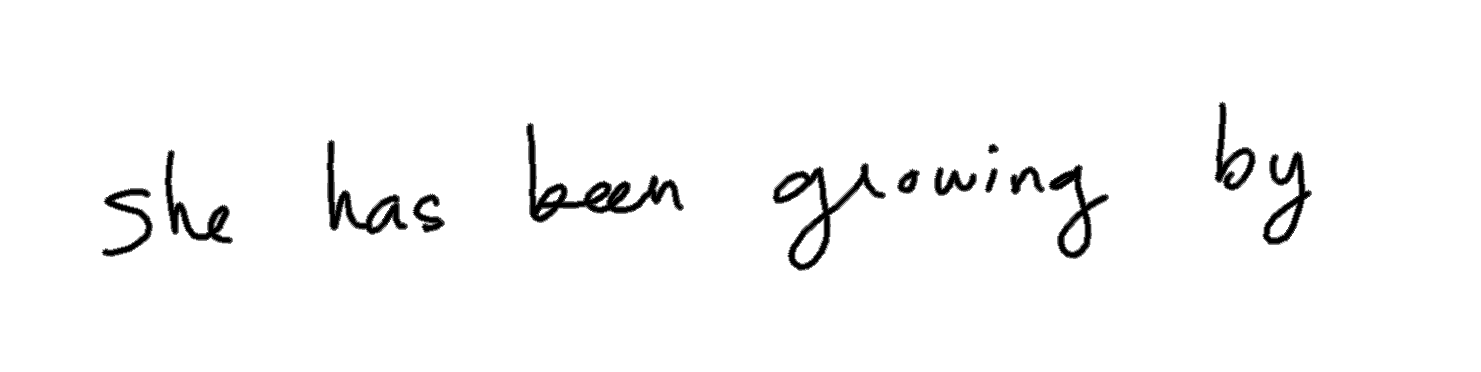 she has been growing by